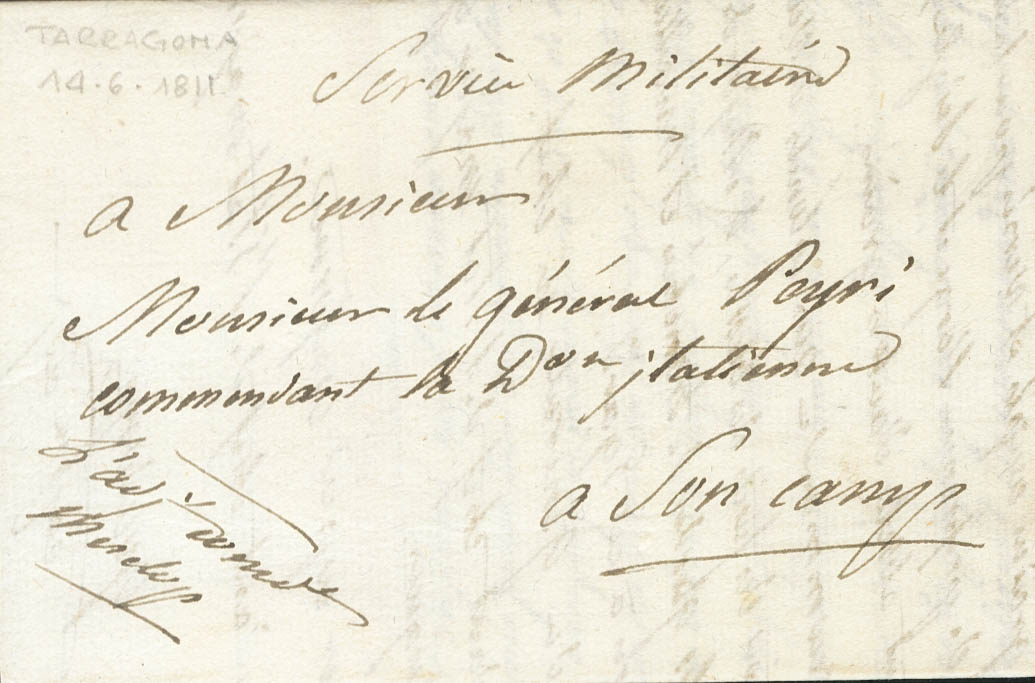 TARRAGONA
14.6.1811
Service Militaire
a Monsieur
Monsieur le général Peyri
commendant la Don jtalienne
a Son camp
L'adj. comdt